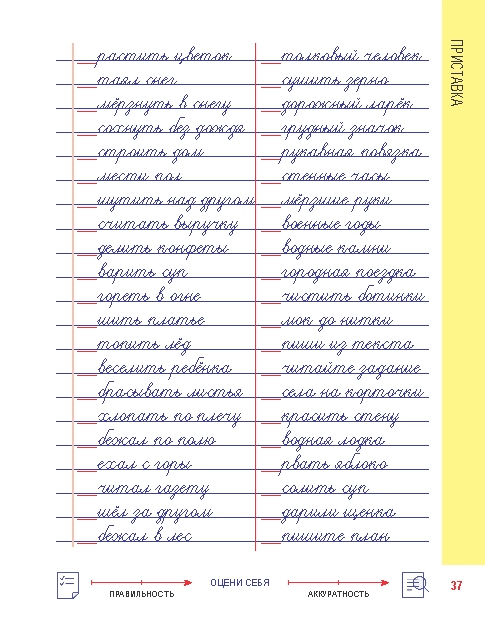 ПРИСТАВКА
растить цветок
таял снег
мёрзнуть в снегу
сохнуть без дождя
строить дом
мести пол
шутить над другом
считать выручку
делить конфеты
варить суп
гореть в огне
шить платье
топить лёд
веселить ребёнка
брасывать листья
хлопать по плечу
бежал по полю
ехал с горы
читал газету
шёл за другом
бежал в лес
толковый человек
сушить зерно
дорожный ларёк
грудный значок
рукавная повязка
стенные часы
мёрзшие руки
военные годы
водные камни
городная поездка
чистить ботинки
мок до нитки
пиши из текста
читайте задание
села на корточки
красить стену
водная лодка
рвать яблоко
солить суп
дарили щенка
пишите план
ПРАВИЛЬНОСТЬ
ОЦЕНИ СЕБЯ
АККУРАТНОСТЬ
37